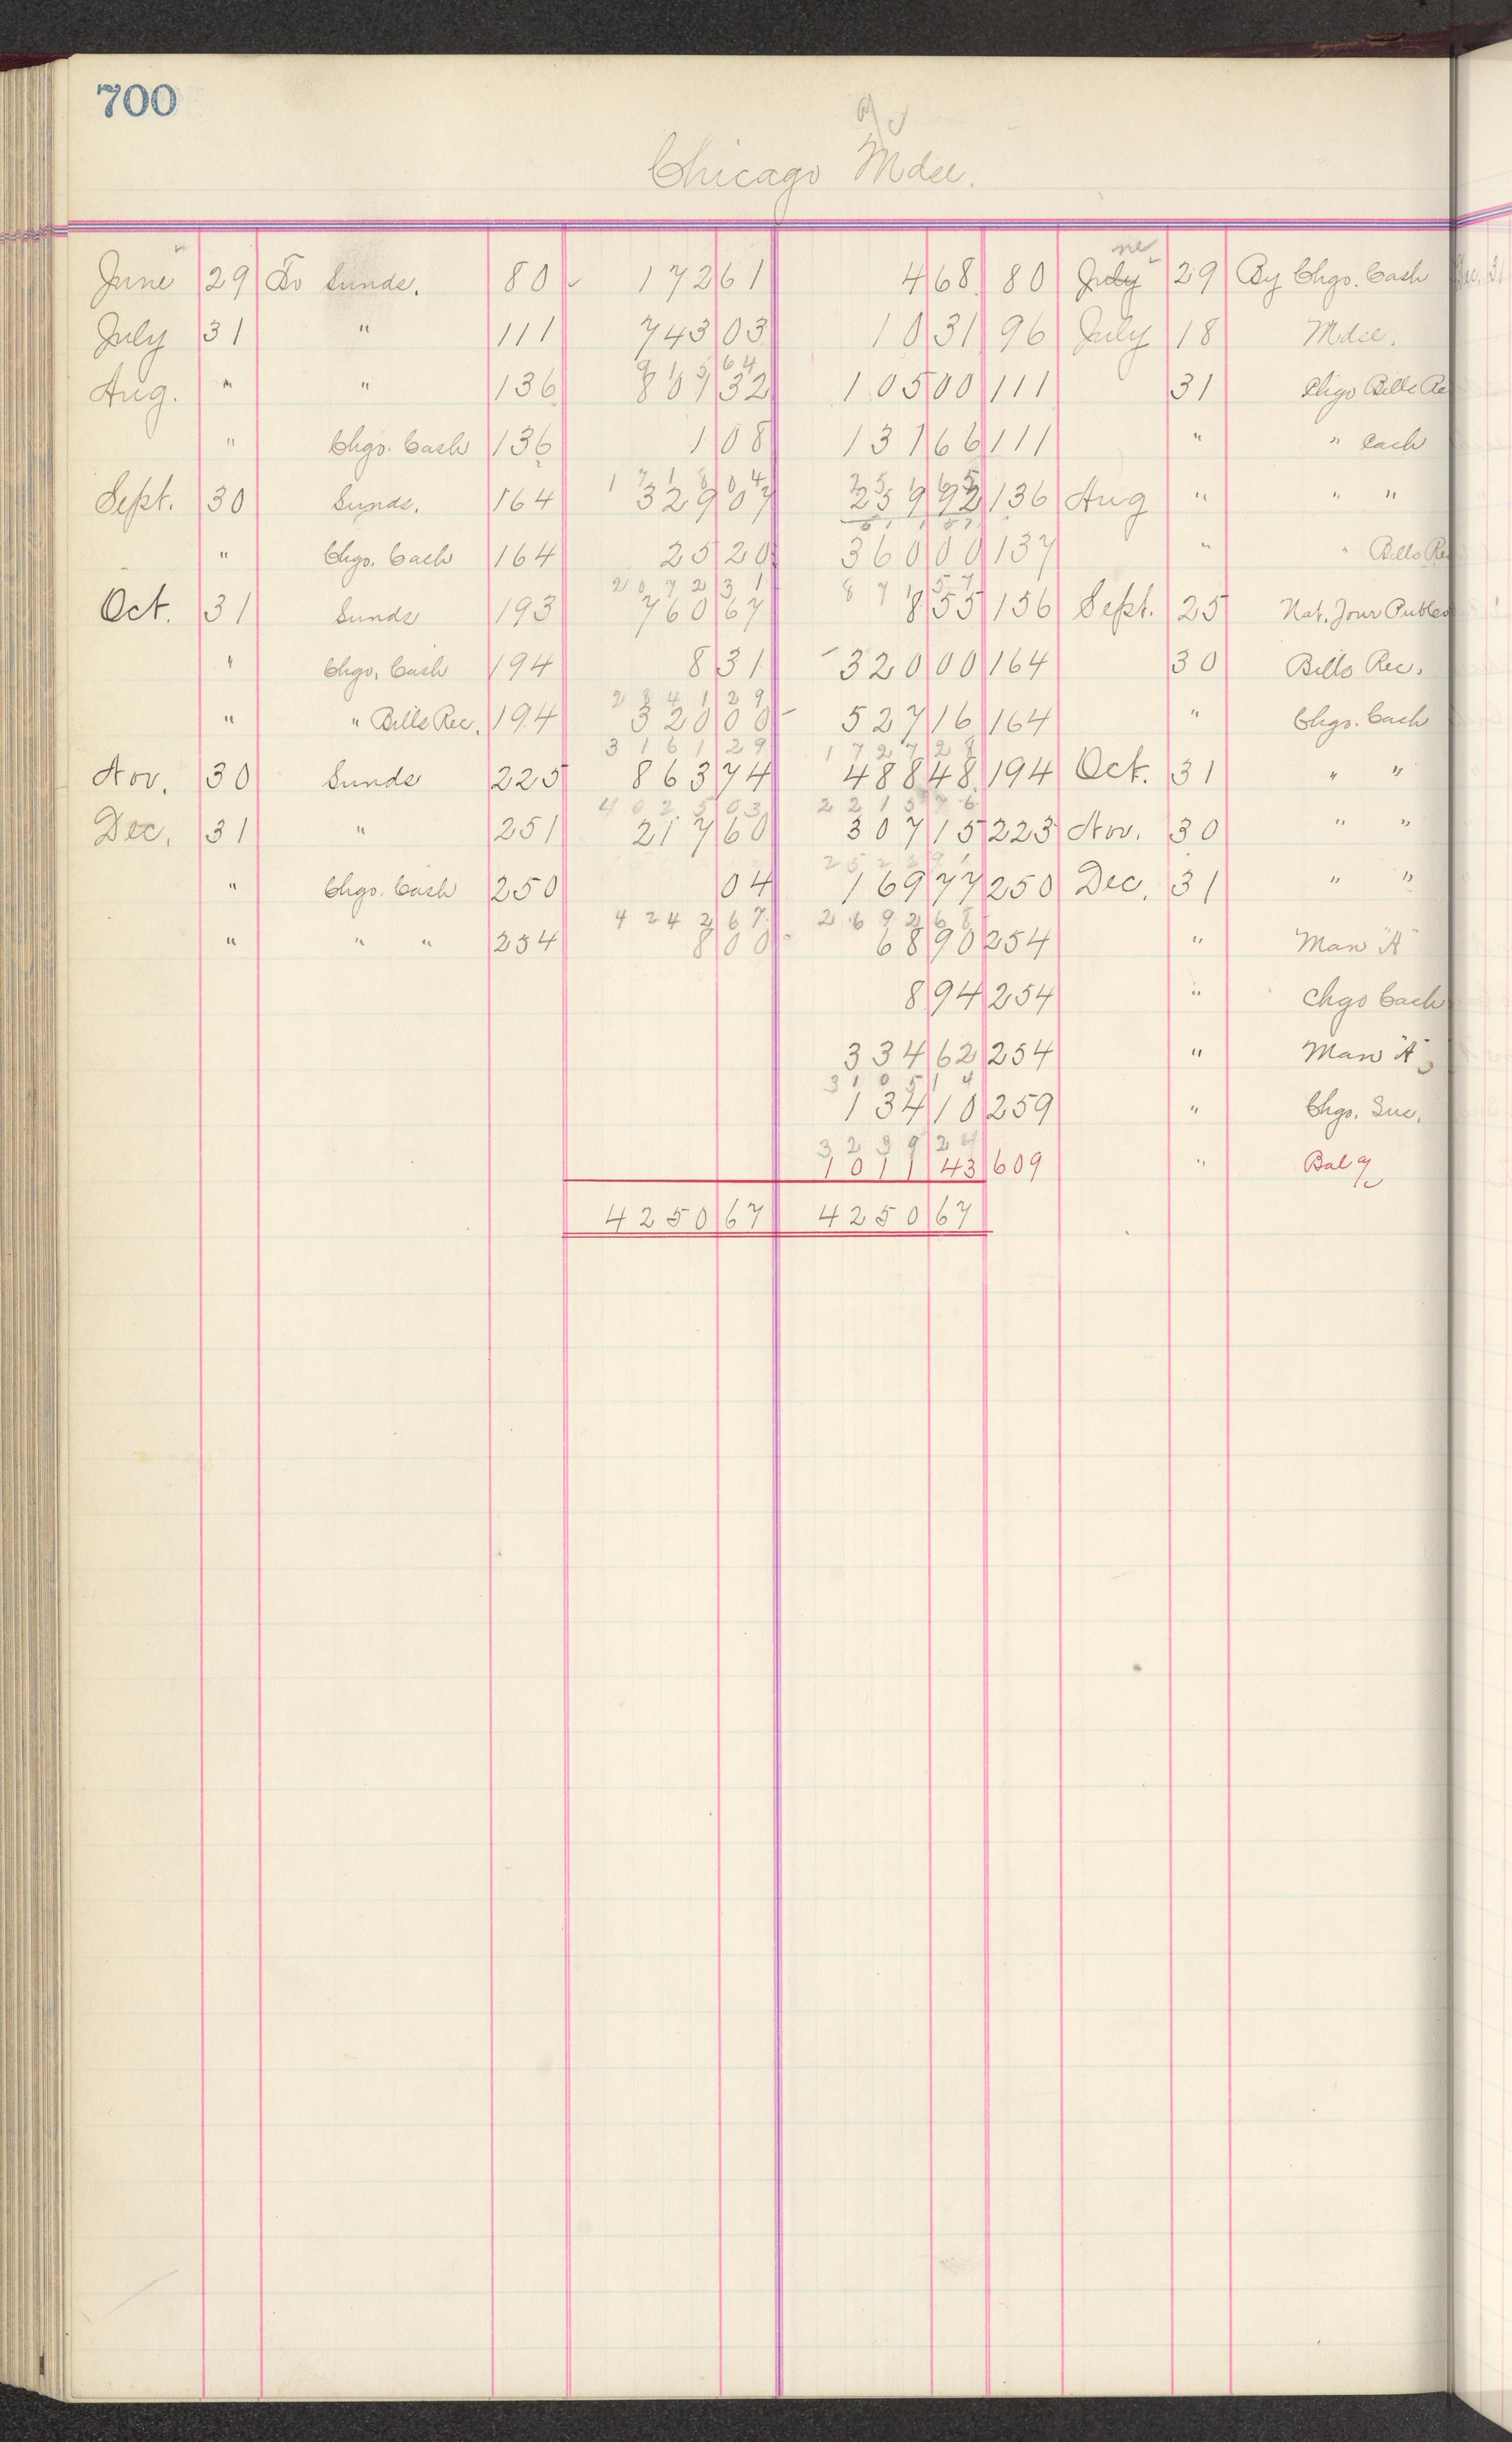 700
Chicago Mdse.
June 29 To Sunds. 80 172 61 4 68 80 July ne 29 By Chgo. Cash
July 31 " 111 743 03 10 31 96 July 18 Mdse.
915 64
Aug. " " 136 807 32 1050 0 111 31 Chgo Bills Re
" Chgo. Cash 136 1 08 131 66 111 " " Cash
1718 04
Sept. 30 Sunds. 164 329 07 259 92 136 Aug " " "
" Chgo. Cash 164 25 20 360 00 137 " " Bills Re
2072 31 871 57
Oct. 31 Sunds 193 760 67 8 55 156 Sept. 25 Nat. Jour Public
" Chgo. Cash 194 8 31 320 00 164 30 Bills Rec.
2841 29
" " Bills Rec. 194 320 00 527 16 164 " Chgo. Cash
3161 29 1727 28
Nov. 30 Sunds 225 863 74 488 48 194 Oct. 31 " "
4025 03 2215 76
Dec. 31 " 251 217 60 307 15 223 Nov. 30 " "
2522 91
" Chgo. Cash 250 04 169 77 250 Dec. 31 " "
4242 67 2692 68
" " " 254 8 00 68 90 254 " Man "A"
8 94 254 " Chgo Cash
334 62 254 " Man "A"
3105 14
134 10 259 " Chgo. Sue.
3239 24
1011 43 609 " Bal
4250 67 4250 67